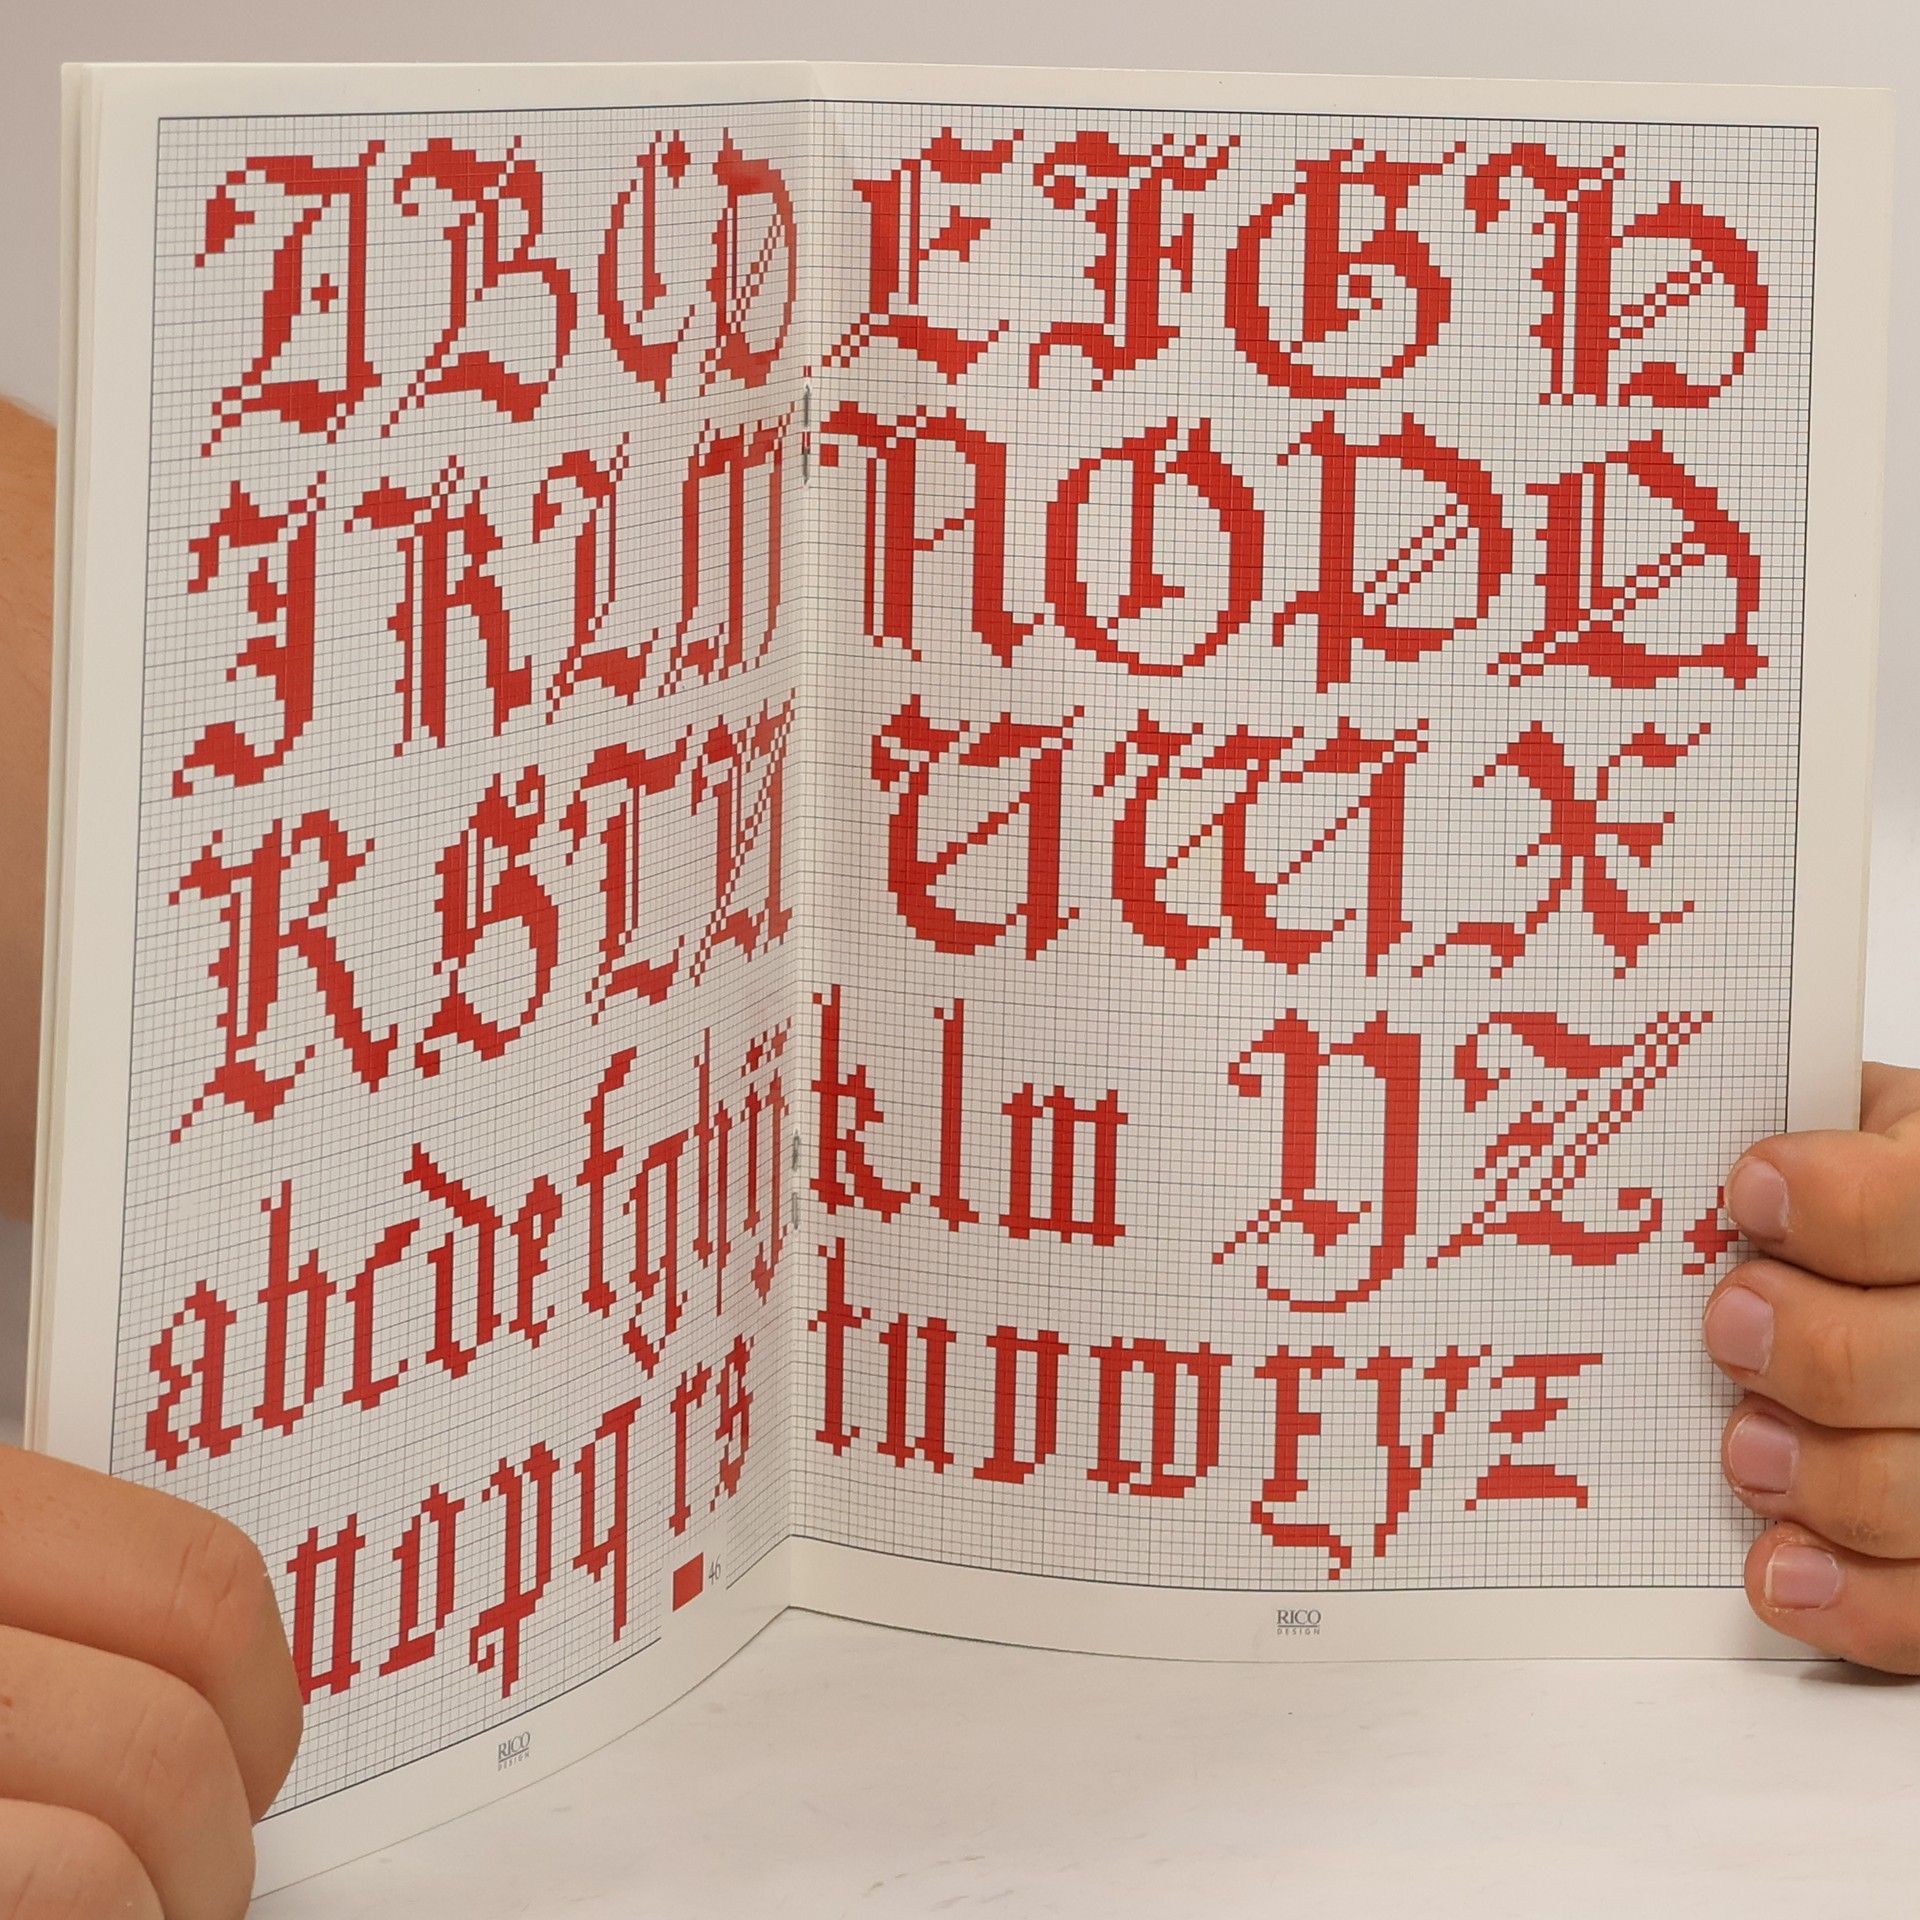 A B C D E F G H
I K L M N O P Q
R S T U V W X
Y Z ,
a b c d e f g h i j k l m
n o p q r s t u v w x y z
46
RICO
DESIGN
RICO
DESIGN